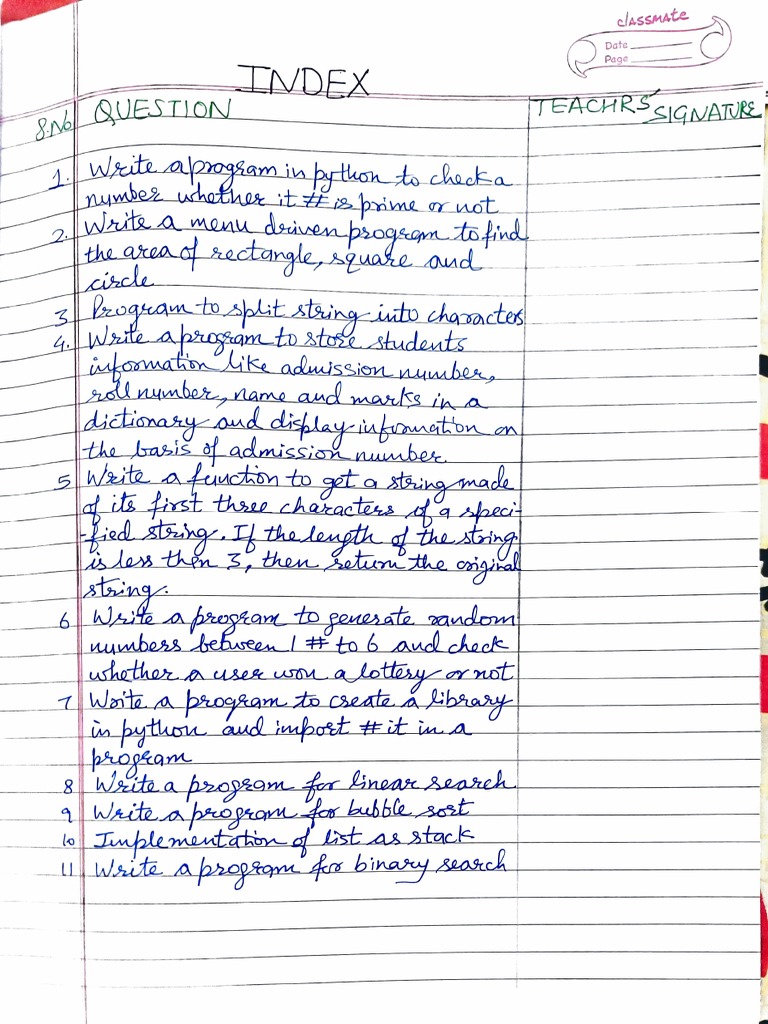 classmate
Date
Page
INDEX
S.No QUESTION TEACHRS' SIGNATURE
1. Write a program in python to check a
number whether it # is prime or not
2. Write a menu driven program to find
the area of rectangle, square and
circle
3 Program to split string into characters
4. Write a program to store students
information like admission number,
roll number, name and marks in a
dictionary and display information on
the basis of admission number.
5 Write a function to get a string made
of its first three characters of a speci-
-fied string. If the length of the string
is less then 3, then return the original
string.
6 Write a program to generate random
numbers between 1 # to 6 and check
whether a user won a lottery or not
7 Write a program to create a library
in python and import # it in a
program
8 Write a program for linear search
9 Write a program for bubble sort
10 Implementation of list as stack
11 Write a program for binary search